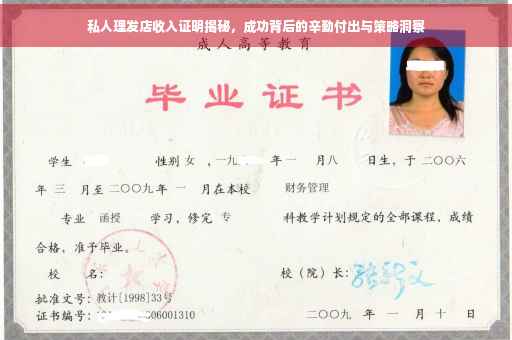 私人理发店收入证明揭秘，成功背后的辛勤付出与策略洞察
成人高等教育
毕业证书
学生 性别 女 ，一九 年 一 月八 日生，于 二〇〇六
年 三 月至 二〇〇九 年 一 月在本校 财务管理
专业 函授 学习，修完 专 科教学计划规定的全部课程，成绩
合格，准予毕业。
校 名： 校（院）长：
批准文号：教计[1998]33号
证书编号： 06001310 二〇〇九 年 一 月 十 日